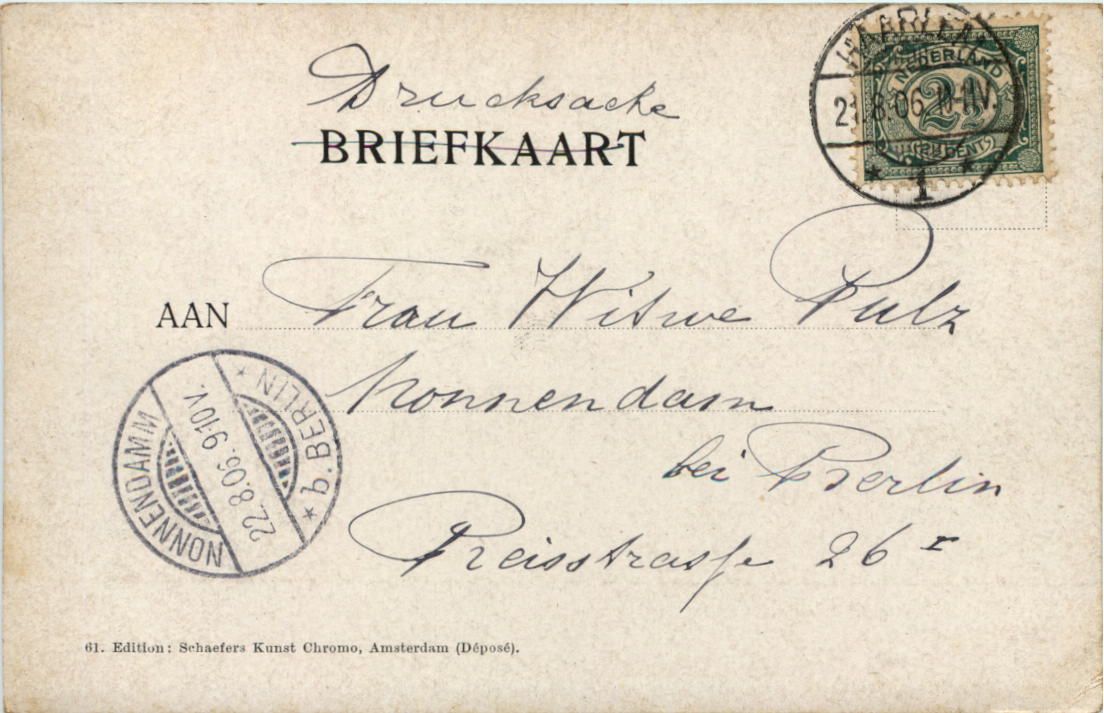 Drucksache
BRIEFKAART
HAARLEM
21.8.06 10-11V.
1
NEDERLAND
2½
CENT
AAN Frau Witwe Pulz
Nonnendam
bei Berlin
Reisstrasse 26 I
NONNENDAMM
22.8.06.9-10V.
* b. BERLIN *
61. Edition: Schaefers Kunst Chromo, Amsterdam (Déposé).